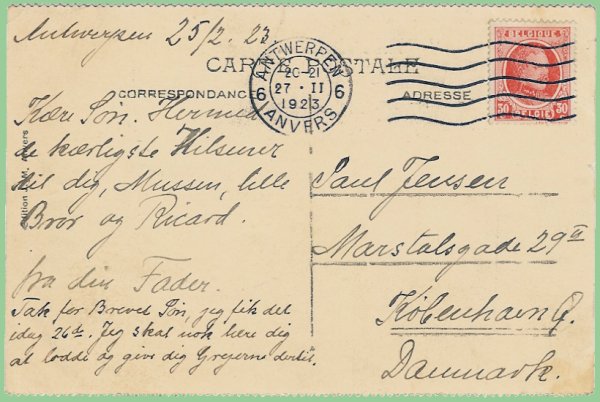 Antwerpen 25/2. 23.
CARTE POSTALE
CORRESPONDANCE
ADRESSE
ANTWERPEN
6 6
20-21
27 · II
1923
ANVERS
BELGIQUE
30 30
BELGIË
Kære Søn. Hermed
de kærligste Hilsener
til dig, Mussen, lille
Bror og Ricard.
fra din Fader.
Tak for Brevet Søn, jeg fik det
idag 26de. Jeg skal nok lære dig
at lodde og give dig Grejerne dertil.
Paul Jensen
Marstalsgade 29 II
København Ø.
Danmark.